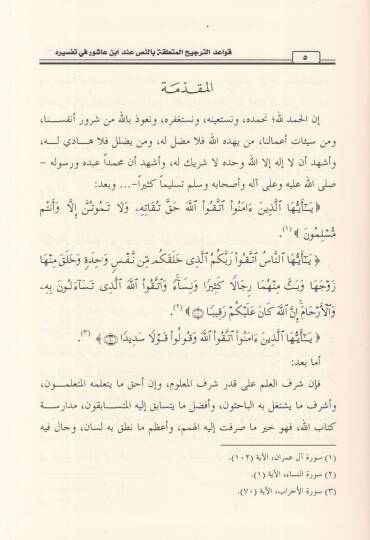 ٥
قواعد الترجيح المتعلقة بالنص عند ابن عاشور في تفسيره
المقدّمة
إن الحمد لله؛ نحمده، ونستعينه، ونستغفره، ونعوذ بالله من شرور أنفسنا،
ومن سيئات أعمالنا، من يهده الله فلا مضل له، ومن يضلل فلا هادي له،
وأشهد أن لا إله إلا الله وحده لا شريك له، وأشهد أن محمداً عبده ورسوله –
صلى الله عليه وعلى آله وأصحابه وسلم تسليماً كثيراً–... وبعد:
﴿ يَـٰٓأَيُّهَا ٱلَّذِينَ ءَامَنُوا۟ ٱتَّقُوا۟ ٱللَّهَ حَقَّ تُقَاتِهِۦ وَلَا تَمُوتُنَّ إِلَّا وَأَنتُم
مُّسْلِمُونَ ﴾(١).
﴿ يَـٰٓأَيُّهَا ٱلنَّاسُ ٱتَّقُوا۟ رَبَّكُمُ ٱلَّذِى خَلَقَكُم مِّن نَّفْسٍ وَٰحِدَةٍ وَخَلَقَ مِنْهَا
زَوْجَهَا وَبَثَّ مِنْهُمَا رِجَالًا كَثِيرًا وَنِسَآءً ۚ وَٱتَّقُوا۟ ٱللَّهَ ٱلَّذِى تَسَآءَلُونَ بِهِۦ
وَٱلْأَرْحَامَ ۚ إِنَّ ٱللَّهَ كَانَ عَلَيْكُمْ رَقِيبًا ﴾(٢).
﴿ يَـٰٓأَيُّهَا ٱلَّذِينَ ءَامَنُوا۟ ٱتَّقُوا۟ ٱللَّهَ وَقُولُوا۟ قَوْلًا سَدِيدًا ﴾(٣).
أما بعد:
فإن شرف العلم على قدر شرف المعلوم، وإن أحق ما يتعلمه المتعلمون،
وأشرف ما يشتغل به الباحثون، وأفضل ما يتسابق إليه المتسابقون، مدارسة
كتاب الله، فهو خير ما صرفت إليه الهمم، وأعظم ما نطق به لسان، وجال فيه
(١) سورة آل عمران، الآية (١٠٢).
(٢) سورة النساء، الآية (١).
(٣) سورة الأحزاب، الآية (٧٠).